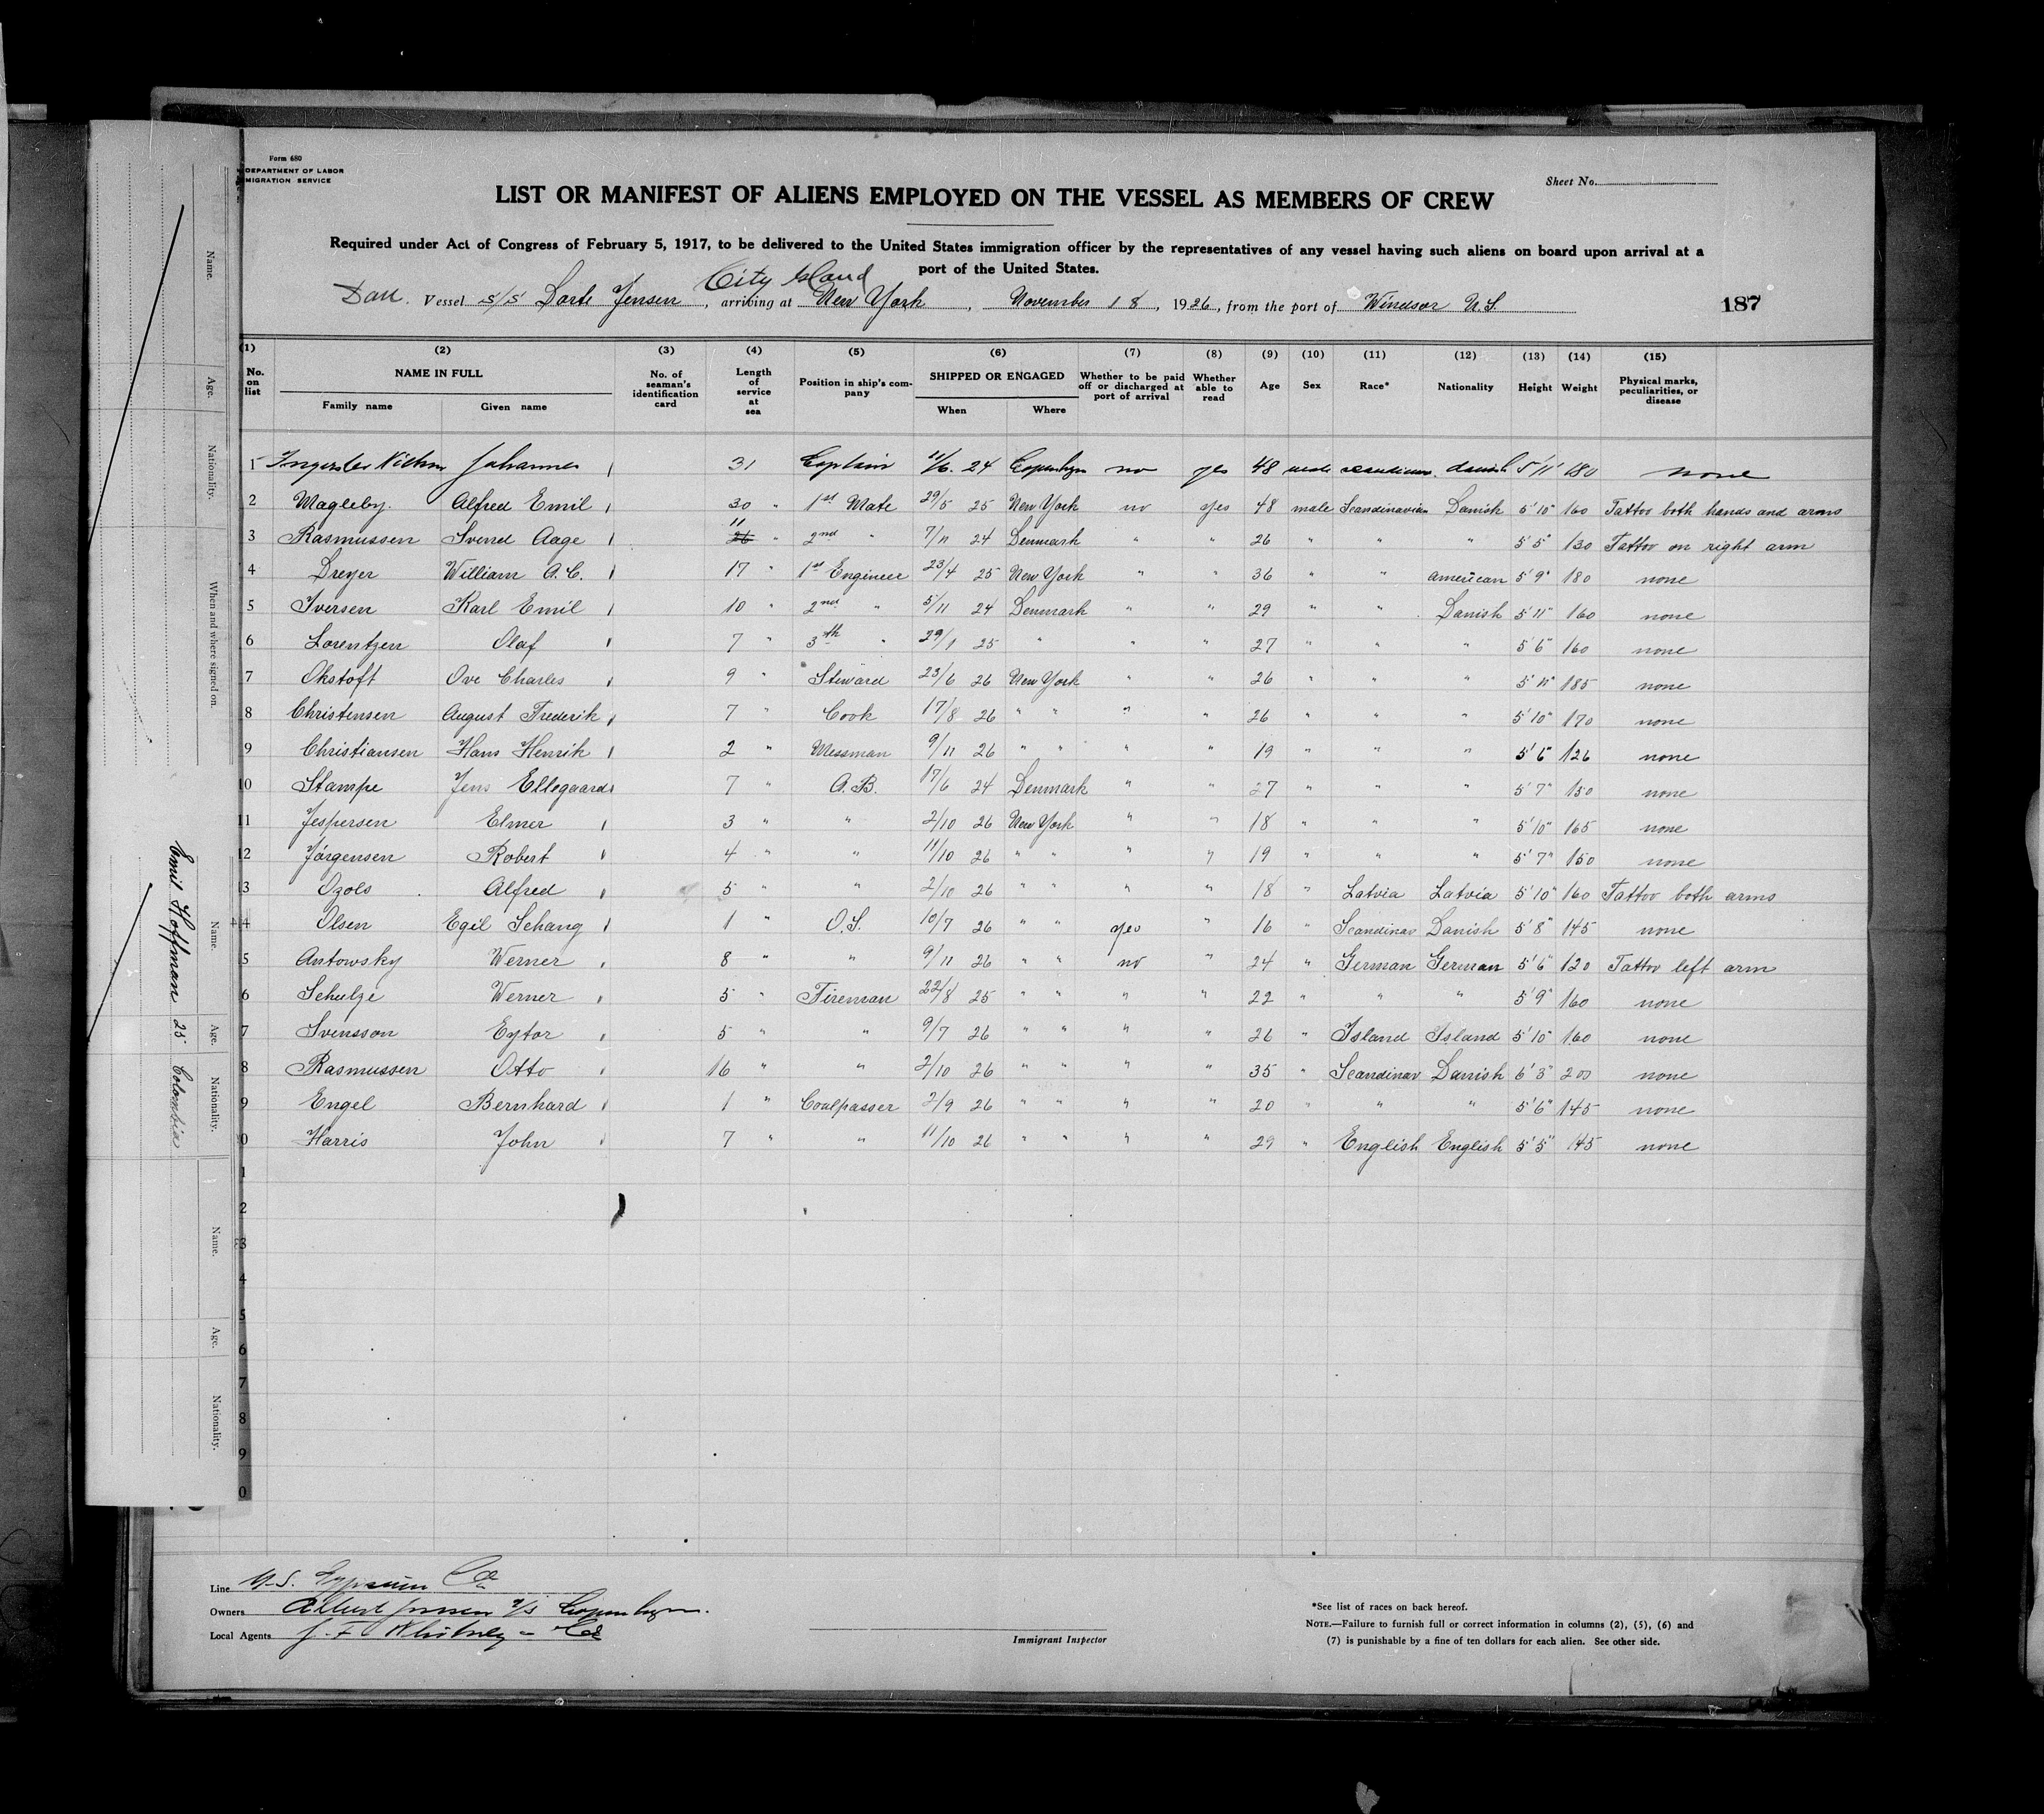 Form 680
DEPARTMENT OF LABOR
MIGRATION SERVICE
Sheet No.
LIST OR MANIFEST OF ALIENS EMPLOYED ON THE VESSEL AS MEMBERS OF CREW
Required under Act of Congress of February 5, 1917, to be delivered to the United States immigration officer by the representatives of any vessel having such aliens on board upon arrival at a
port of the United States.
City Island
Dan. Vessel s/s Dorte Jensen, arriving at New York, November 18, 1926, from the port of Windsor N.S.
187
(1) (2) (3) (4) (5) (6) (7) (8) (9) (10) (11) (12) (13) (14) (15)
No. on list NAME IN FULL Family name Given name No. of seaman's identification card Length of service at sea Position in ship's company SHIPPED OR ENGAGED When Where Whether to be paid off or discharged at port of arrival Whether able to read Age Sex Race* Nationality Height Weight Physical marks, peculiarities, or disease
1 Johannes 31 Captain 11/6 24 Copenhagen no yes 48 male danish 5'11" 180 none
2 Magleby. Alfred Emil 30 " 1st Mate 29/5 25 New York no yes 48 male Scandinavian Danish 5'10" 160 Tattoo both hands and arms
3 Rasmussen Svend Aage 11 26 " 2nd " 7/11 24 Denmark " " 26 " " " 5'5" 130 Tattoo on right arm
4 Dreyer William A.C. 17 " 1st Engineer 23/4 25 New York " " 36 " " american 5'9" 180 none
5 Iversen Karl Emil 10 " 2nd " 5/11 24 Denmark " " 29 " " Danish 5'11" 160 none
6 Lorentzen Olaf 7 " 3th " 29/1 25 " " " 27 " " " 5'6" 160 none
7 Okstoft Ove Charles 9 " Steward 23/6 26 New York " " 26 " " " 5'11" 185 none
8 Christensen August Frederik 7 " Cook 17/8 26 " " " " 26 " " " 5'10" 170 none
9 Christiansen Hans Henrik 2 " Messman 9/11 26 " " " " 19 " " " 5'6" 126 none
10 Stampe Jens Ellegaard 7 " A.B. 17/6 24 Denmark " " 27 " " " 5'7" 150 none
11 Jespersen Elmer 3 " " 2/10 26 New York " " 18 " " " 5'10" 165 none
12 Jørgensen Robert 4 " " 11/10 26 " " " " 19 " " " 5'7" 150 none
13 Ozols Alfred 5 " " 2/10 26 " " " " 18 " Latvia Latvia 5'10" 160 Tattoo both arms
14 Olsen Egil Schang 1 " O.S. 10/7 26 " " yes " 16 " Scandinav Danish 5'8" 145 none
5 Antowsky Werner 8 " " 9/11 26 " " no " 24 " German German 5'6" 120 Tattoo left arm
6 Schulze Werner 5 " Fireman 22/8 25 " " " " 22 " " " 5'9" 160 none
7 Svensson Eytor 5 " " 9/7 26 " " " " 26 " Island Island 5'10" 160 none
8 Rasmussen Otto 16 " " 2/10 26 " " " " 35 " Scandinav Danish 6'3" 200 none
9 Engel Bernhard 1 " Coalpasser 2/9 26 " " " " 20 " " " 5'6" 145 none
0 Harris John 7 " " 11/10 26 " " " " 29 " English English 5'5" 145 none
1
2
3
4
5
6
7
8
9
0
Name. Age. Nationality. When and where signed on.
Name. Age. Nationality.
Emil Hoffman 25 Colombia
Name. Age. Nationality.
Line U.S. Gypsum Co
Owners Albert Jensen A/S Copenhagen.
Local Agents J. F. Whitney & Co
Immigrant Inspector
*See list of races on back hereof.
NOTE.—Failure to furnish full or correct information in columns (2), (5), (6) and
(7) is punishable by a fine of ten dollars for each alien. See other side.